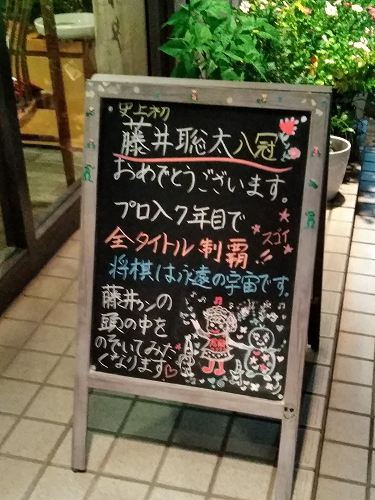 史上初
藤井聡太八冠
おめでとうございます。
プロ入7年目で
全タイトル制覇!!
スゴイ
将棋は永遠の宇宙です。
藤井クンの
頭の中を
のぞいてみたく
なります